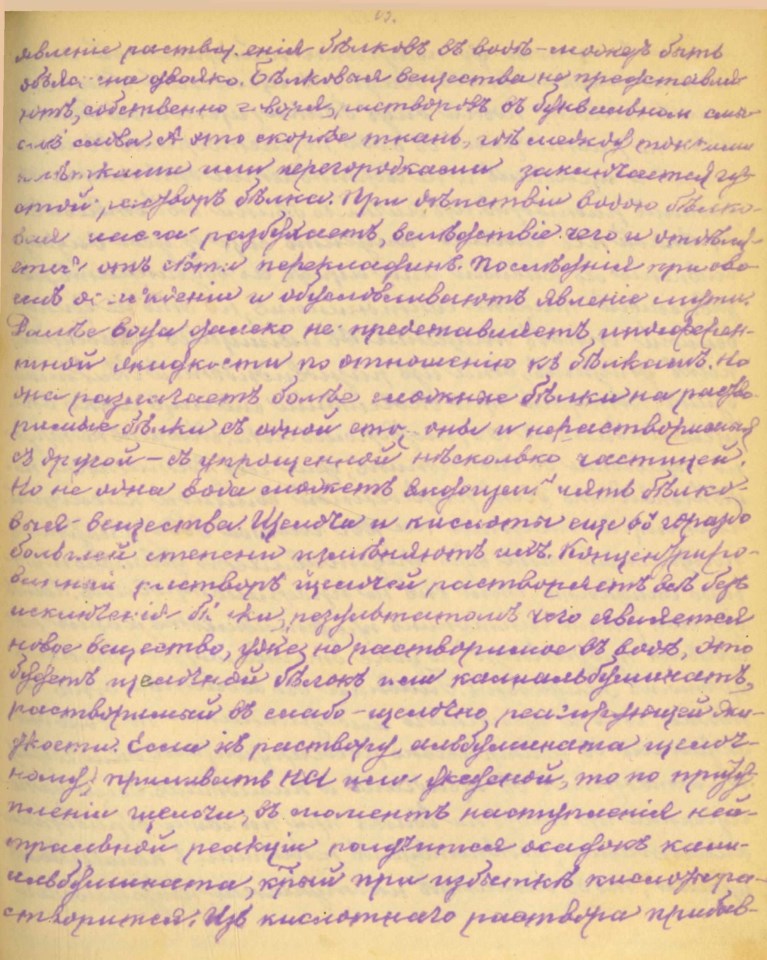 явленіе раствор.енія бѣлковъ въ водѣ – можетъ быть
объяс на двояко. Бѣлковыя вещества не представля-
ютъ, собственно говоря, растворовъ въ буквальном смы-
слѣ слова. А это скорѣе ткань, гдѣ между тонкими
клѣтками или перегородками заключается гу-
стой растворъ бѣлка. При дѣйствіи водою бѣлко-
вая масса разбухаетъ, вслѣдствіе чего и отдѣля-
ется отъ перекладинъ. Послѣднія при ово-
и обусловливаютъ явленіе мути.
Далѣе вода далеко не представляетъ индеферен-
тной жидкости по отношенію къ бѣлкамъ. Но
она разлагаетъ болѣе сложные бѣлки на раство-
римые бѣлки съ одной сто оны и нерастворимый
съ другой – съ упрощенной нѣсколько частицей.
Но не одна вода можетъ видоизмѣнять бѣлко-
выя вещества. Щелочи и кислоты еще въ гораздо
большей степени измѣняютъ ихъ. Концентриро-
ванный растворъ щелочей растворяетъ всѣ безъ
исключенія бѣлки, результатомъ чего является
новое вещество, уже не растворимое въ водѣ, это
будетъ щелочной бѣлокъ или калиальбуминатъ,
растворимый въ слабо-щелочно реагирующей жи-
дкости. Если къ раствору альбумината щелоч-
ному, приливать HCl или уксусной, то по приту-
пленіи щелочи, въ моментъ наступленія ней-
тральной реакціи получится осадокъ кали-
альбумината, к-рый при избыткѣ кислоты ра-
створится. Изъ кислотнаго раствора прибав-